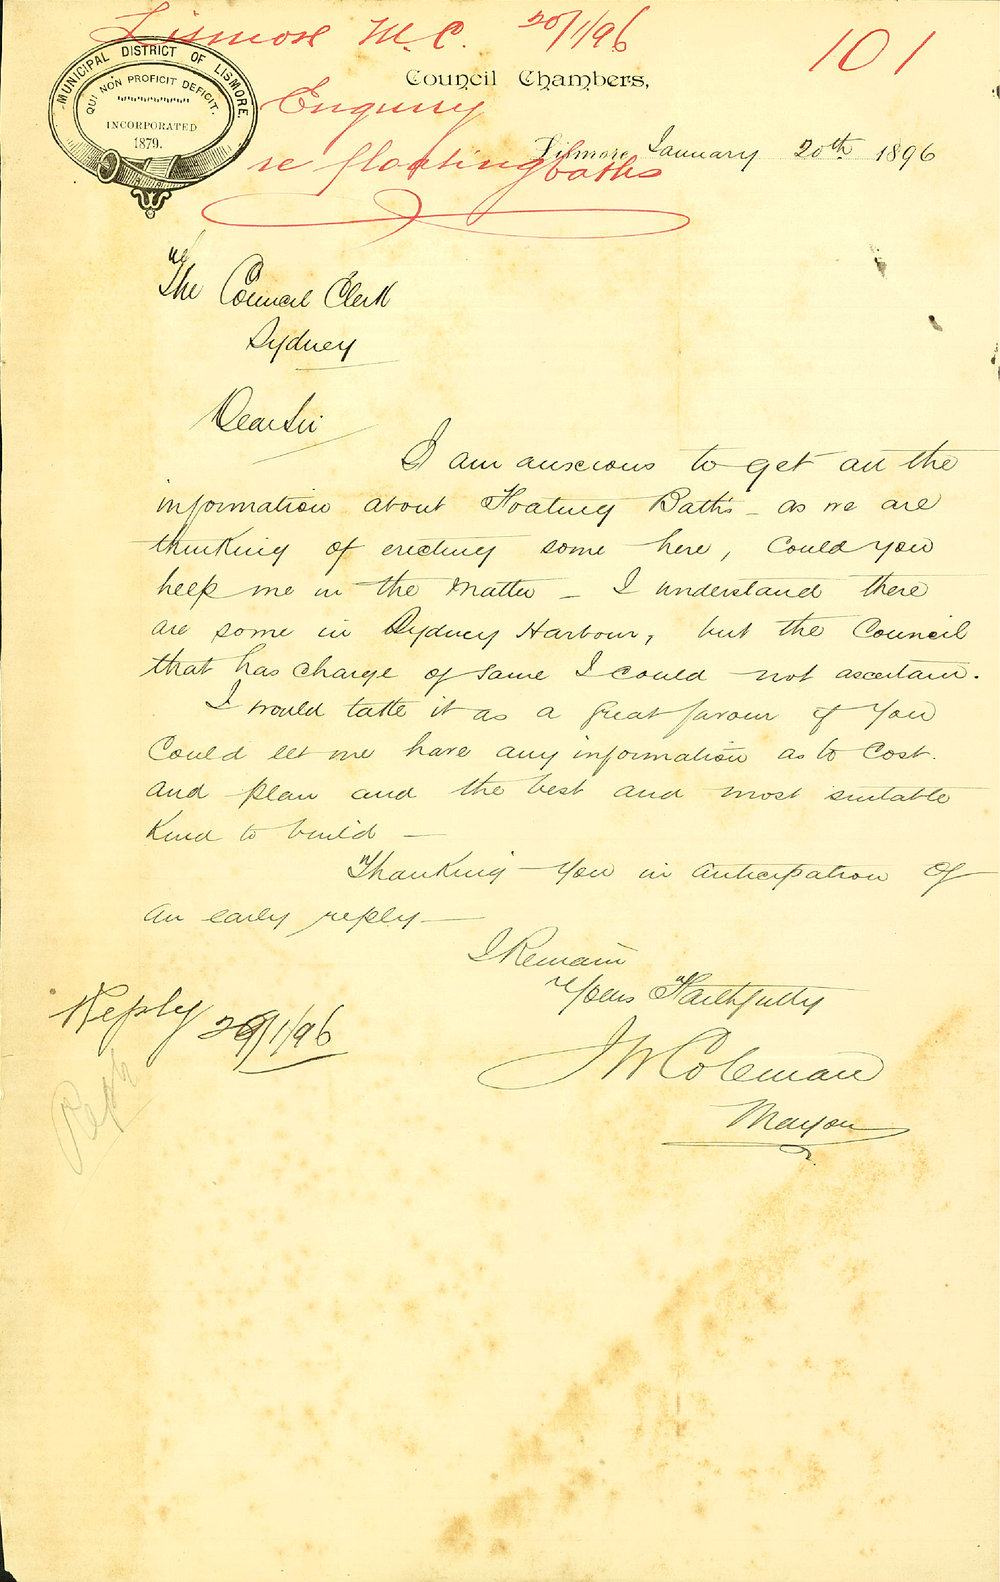 Lismore M.C. 20/1/96
101
MUNICIPAL DISTRICT OF LISMORE.
QUI NON PROFICIT DEFICIT.
INCORPORATED
1879.
Council Chambers,
Enquiry
re floating baths
Lismore, January 20th 1896
The Council Clerk
Sydney
Dear Sir
I am anxious to get all the
information about Floating Baths - as we are
thinking of erecting some here, Could you
help me in the Matter - I understand there
are some in Sydney Harbour, but the Council
that has charge of same I could not ascertain.
I would take it as a great favour if you
Could let me have any information as to Cost.
and plan and the best and most suitable
Kind to build -
Thanking you in anticipation of
an early reply -
I Remain
Yours Faithfully
J W Coleman
Mayor
Reply 29/1/96
Reply